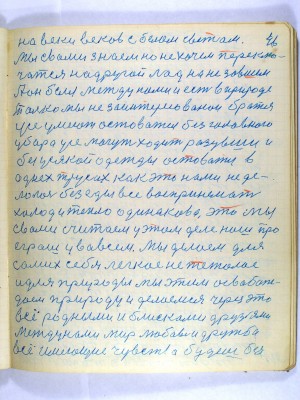 26
на веки веков с белом светам.
Мы с вами знаем но не хочем переклю-
чатся на другой лад на не зовшем
А он бел между нами и ест в природе
Толко мы не заинтересованои братся
уже умеют оставатся без головного
убара уже могут ходит разувши и
без усякой одежды остоватя в
одних трусах как это нами не де-
лолос без еды все воспринемат
холод и тепло одинаково, это мы
с вами считаем у этом деле наш про
егриш у в авсем. Мы делаем для
самих себя легкое не тяжолае
и для природы мы этим освобаж-
даем природу и делаемся через это
всё родными и блисками друзями
между нами мир любов и дружба
всё имеющие чувства будет без